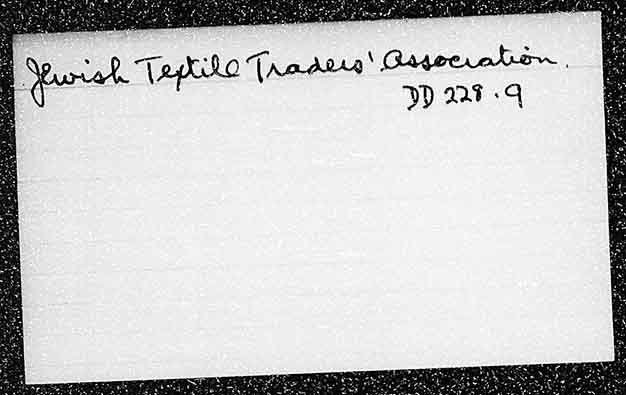 Jewish Textile Traders' Association.
DD 228.9